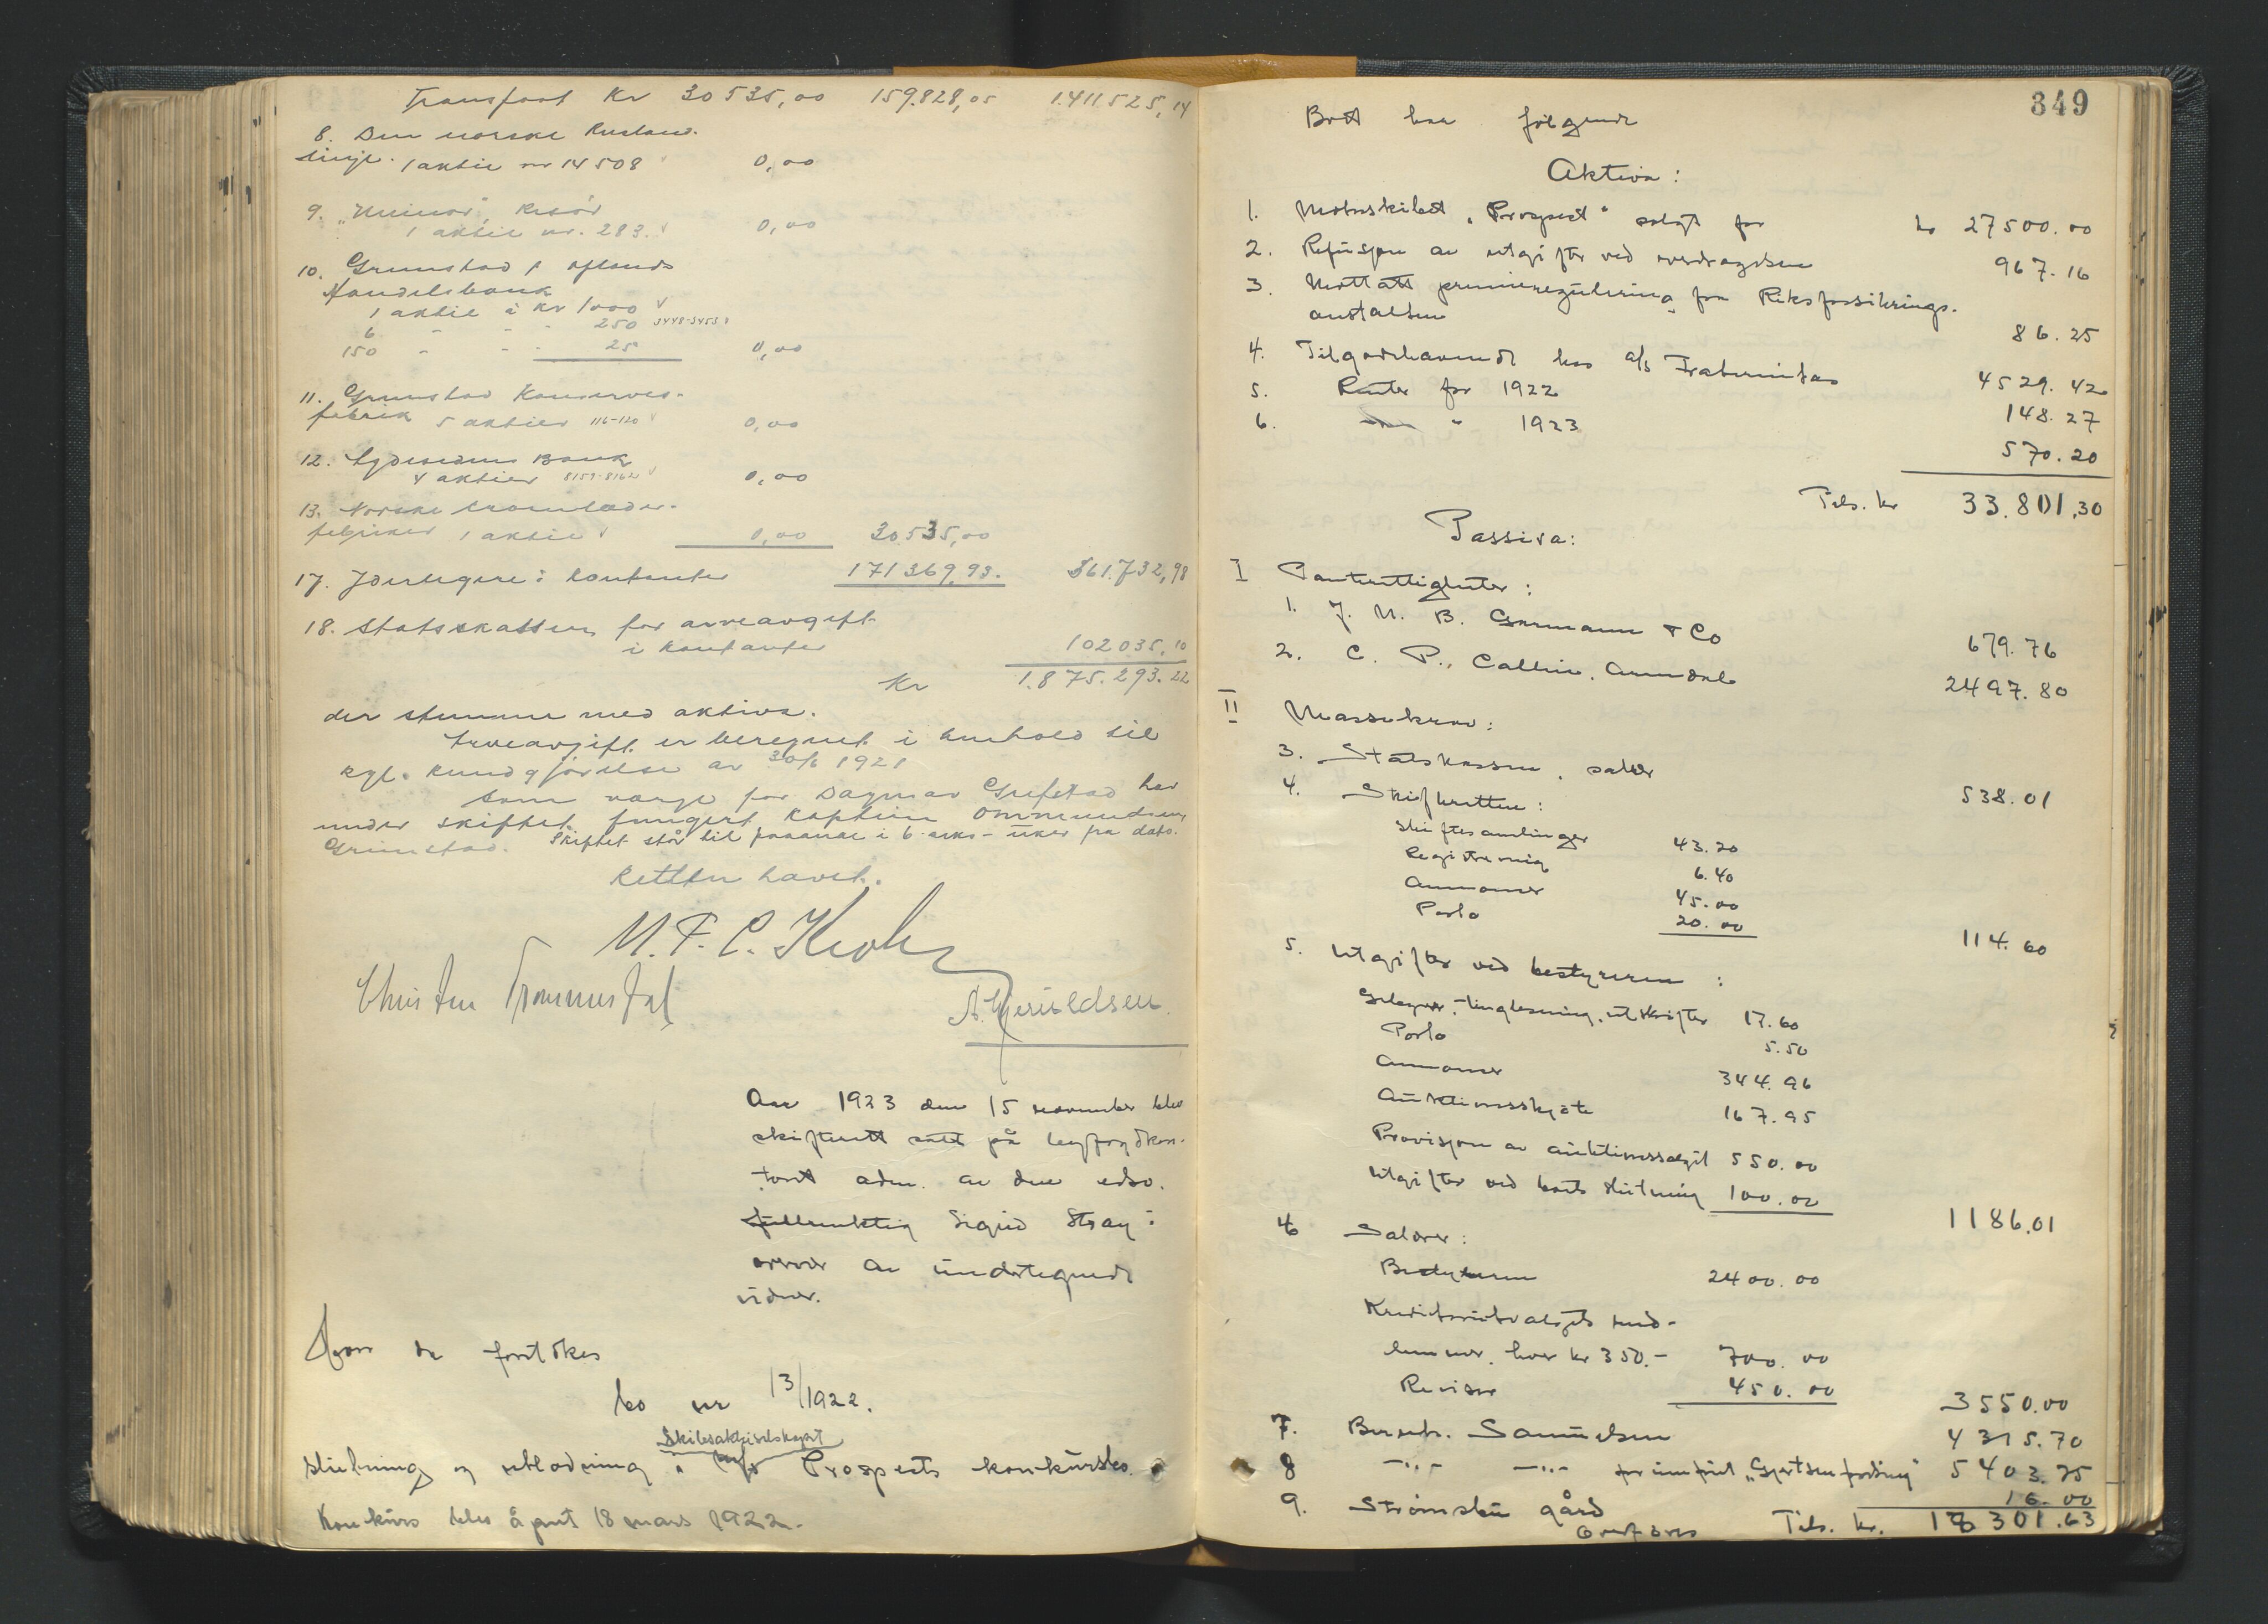 Transport Kr 30535,00 159.828,05 1.411525,14
8. Den norske Rusland-
linje. 1 aktie nr 14508 0,00
9. Risør
1 aktie nr. 283. 0,00
10. Grimstad & oplands
Handelsbank
1 aktie à kr 1000
6 - - - 250 3448-3453
150 - - - 25 0,00
11. Grimstad Konserves-
fabrik 5 aktier 116-120 0,00
12. Bank
4 aktier 8159-8162 0,00
13. Norske
fabriker 1 aktie 0,00 30535,00
17. Yderligere i kontanter 171369,93. 361.732,98
18. Statskassen for arveavgift
i kontanter 102035,10
Kr 1.875.293.22
der stemme med aktiva.
Arveavgift er beregnet i henhold til
kgl. kundgjørelse av 30/6 1921
Som verge for Dagmar Grefstad har
under skiftet fungert kaptein Ommundsen,
Grimstad. Skiftet står til paaanke i 6 seks - uker fra dato.
Retten hævet.
M. F. C. Krohn
Aar 1923 den 15 november blev
skifterett satt på byfogdkon-
toret adm. av den edsv.
fullmektig Sigrid Stray i
overvær av undertegnede
vidner.
Hvor da foretokes
bo nr 13/1922.
Skibsaktieselskapet
slutning og utlodning i Prospects konkursbo.
Konkurs blev åpnet 18 mars 1922.
349
Boet har følgende
Aktiva:
1. Motorskibet "Prospect" solgt for kr 27500.00
2. Refusjon av utgifter ved overdragelsen 967.16
3. Mottatt premieregulering fra Riksforsikrings-
anstalten 86.25
4. Tilgodehavende hos a/s Fraternitas 4529.42
5. Renter for 1922 148.27
6. " 1923 570.20
Tils. kr 33.801,30
Passiva:
I Panterettigheter:
1. J. N. B. Gormann & Co 679.76
2. C. P. Callin. Arendal 2497.80
II Massekrav:
3. Statskassen, salær 538.01
4. Skifteretten:
Skiftesamlinger 43.20
Registrering 6.40
Annonser 45.00
Porto 20.00 114.60
5. Utgifter ved bestyreren:
tinglesning, utskrifter 17.60
Porto 5.50
Annonser 344.96
Auktionsskjøte 167.95
Provisjon av auktionssalget 550.00
Utgifter ved boets slutning 100.00 1186.01
6 Salærer:
Bestyreren 2400.00
Kreditorutvalgets med-
lemmer, hver kr 350.- 700.00
Revisor 450.00 3550.00
7. Bernh. Samuelsen 4315.70
8 -"- -"- for "Gjertsen fordring" 5403.75
9. Strømsbu gård 16.00
Overføres Tils. kr. 18301.63